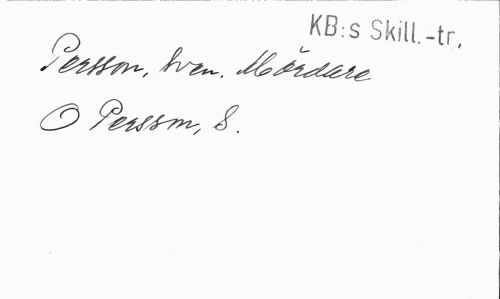 KB:s Skill.-tr.
Persson, Sven. Mördare
O Persson, S.